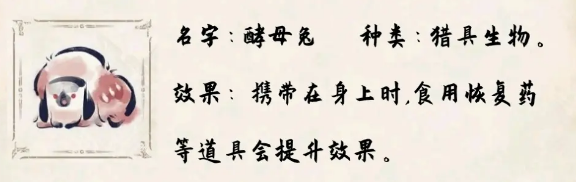 名字：酵母兔 种类：猎具生物。
效果：携带在身上时,食用恢复药
等道具会提升效果。